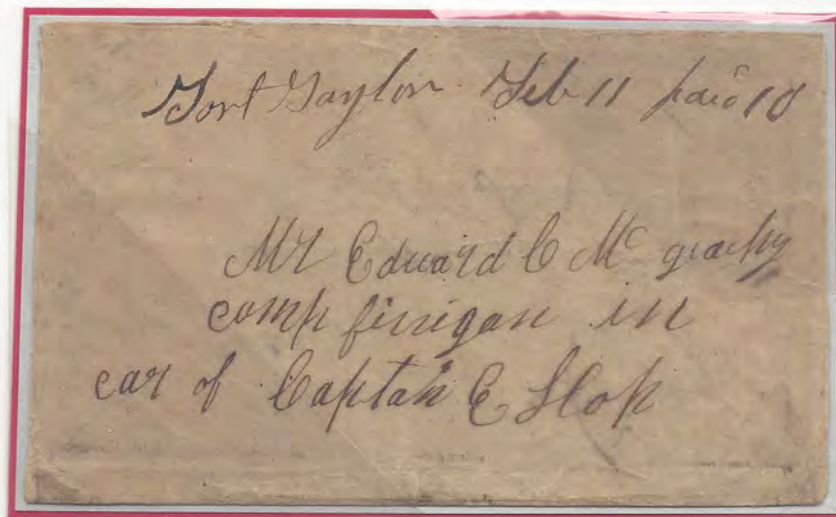 Fort Gaylor Feb 11 paid 10
Mr Edward C Mc geachy
comp finigan in
car of Captain E Slop